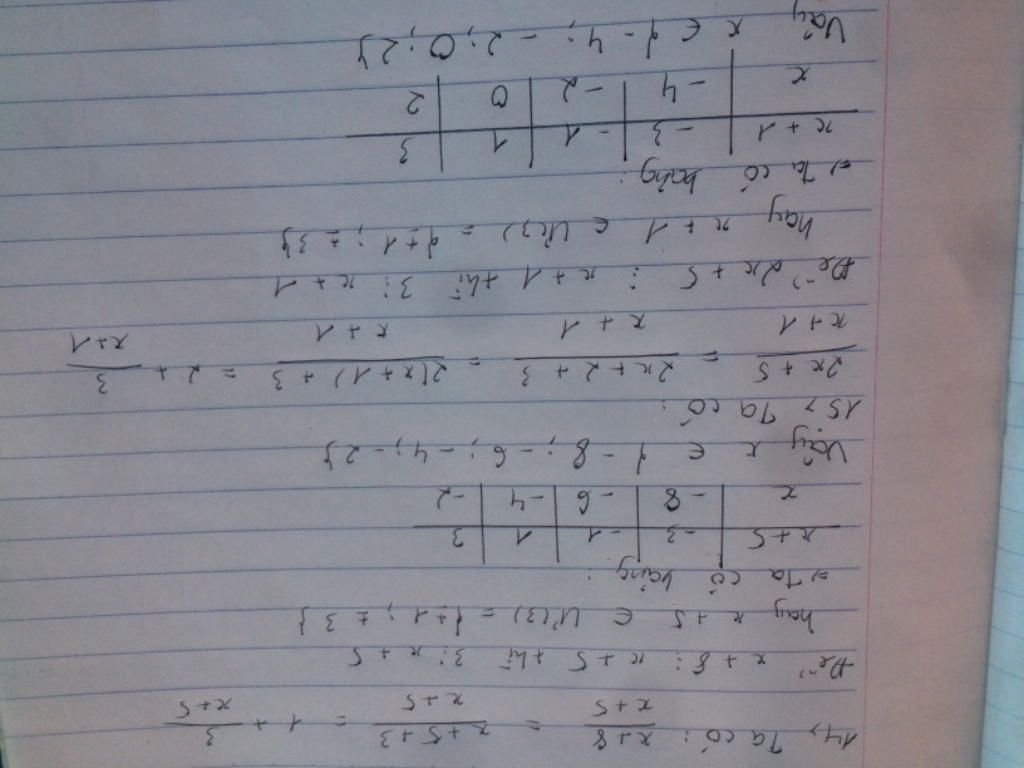 14, Ta có: x+8/x+5 = x+5+3/x+5 = 1 + 3/x+5
Để x + 8 ⋮ x + 5 thì 3 ⋮ x + 5
hay x + 5 ∈ Ư(3) = {±1; ±3}
=> Ta có bảng:
x+5 | -3 | -1 | 1 | 3
x | -8 | -6 | -4 | -2
Vậy x ∈ {-8; -6; -4; -2}
15> Ta có:
2x+5/x+1 = 2x+2+3/x+1 = 2(x+1)+3/x+1 = 2 + 3/x+1
Để 2x + 5 ⋮ x + 1 thì 3 ⋮ x + 1
hay x + 1 ∈ Ư(3) = {±1; ±3}
=> Ta có bảng:
x+1 | -3 | -1 | 1 | 3
x | -4 | -2 | 0 | 2
Vậy x ∈ {-4; -2; 0; 2}